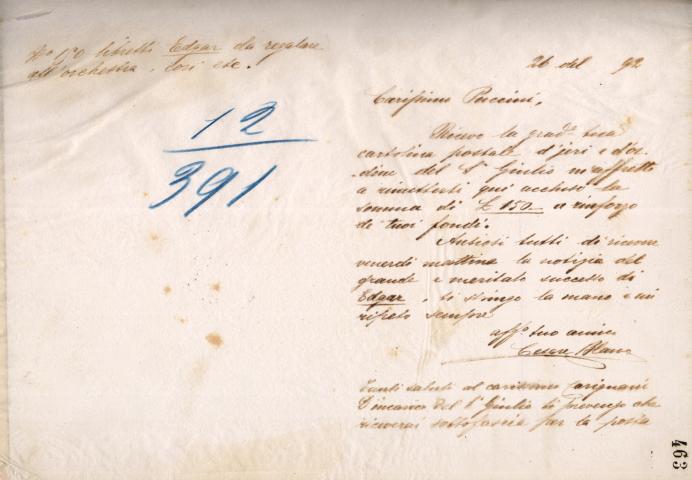 26 del 92
Carissimo Puccini,
Ricevo la grad.ª tua
cartolina postale d'jeri e d'or-
-dine del S.r Giulio m'affretto
a rimetterti qui acclusi la
somma di £ 150 a rinforzo
de' tuoi fondi.
Ansiosi tutti di ricevere
venerdì mattina la notizia del
grande e meritato successo di
Edgar, ti stringo la mano e mi
ripeto sempre
aff.º tuo amico
Cesare Blanc
Tanti saluti al carissimo Carignani
D'incarico del S.r Giulio ti prevengo che
riceverai sottofascia per la posta
Nº 120 libretti Edgar da regalare
all'orchestra, cori etc.
12
391
463